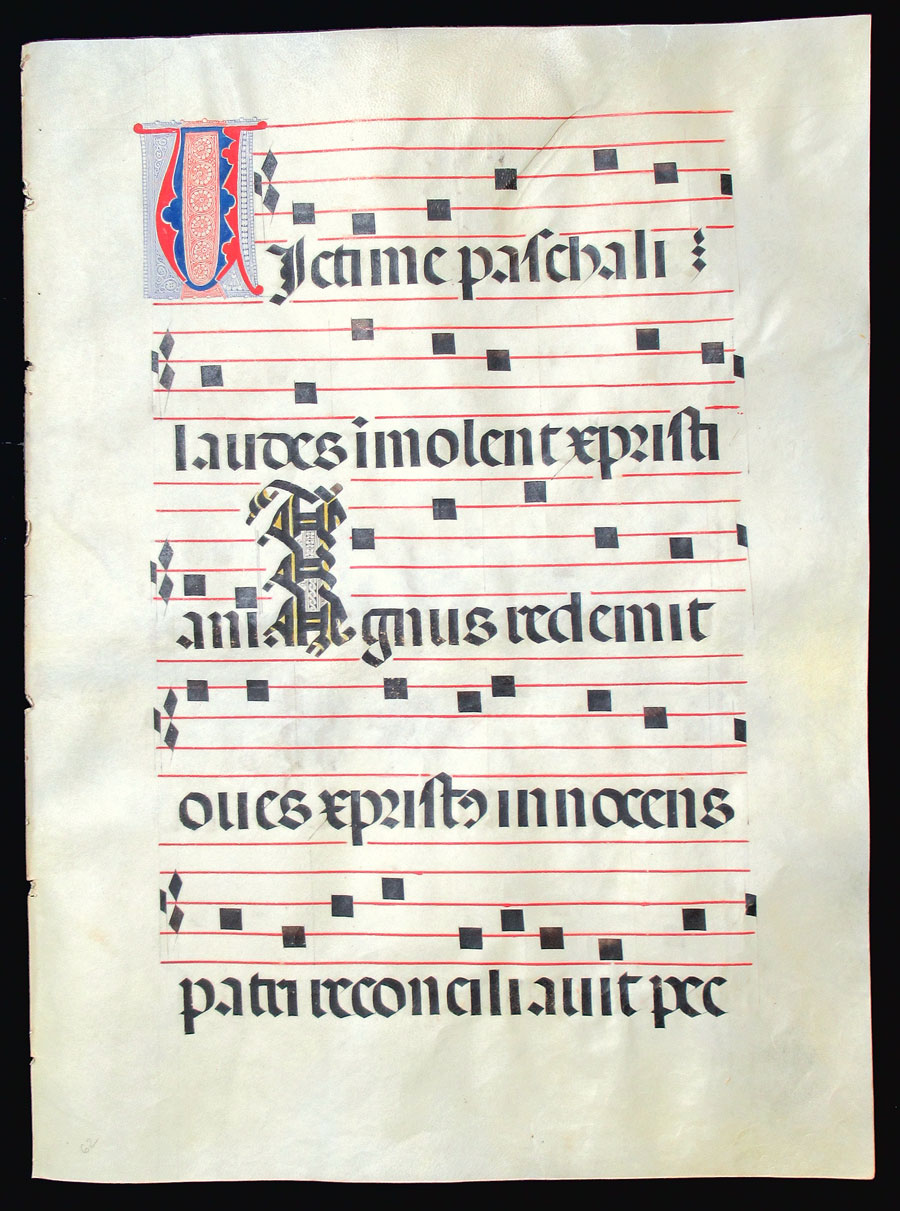 VIctime paschali :
laudes imolent xpristi
ani Agnus redemit
oues xpristɔ innocens
patri reconciliauit pec
62